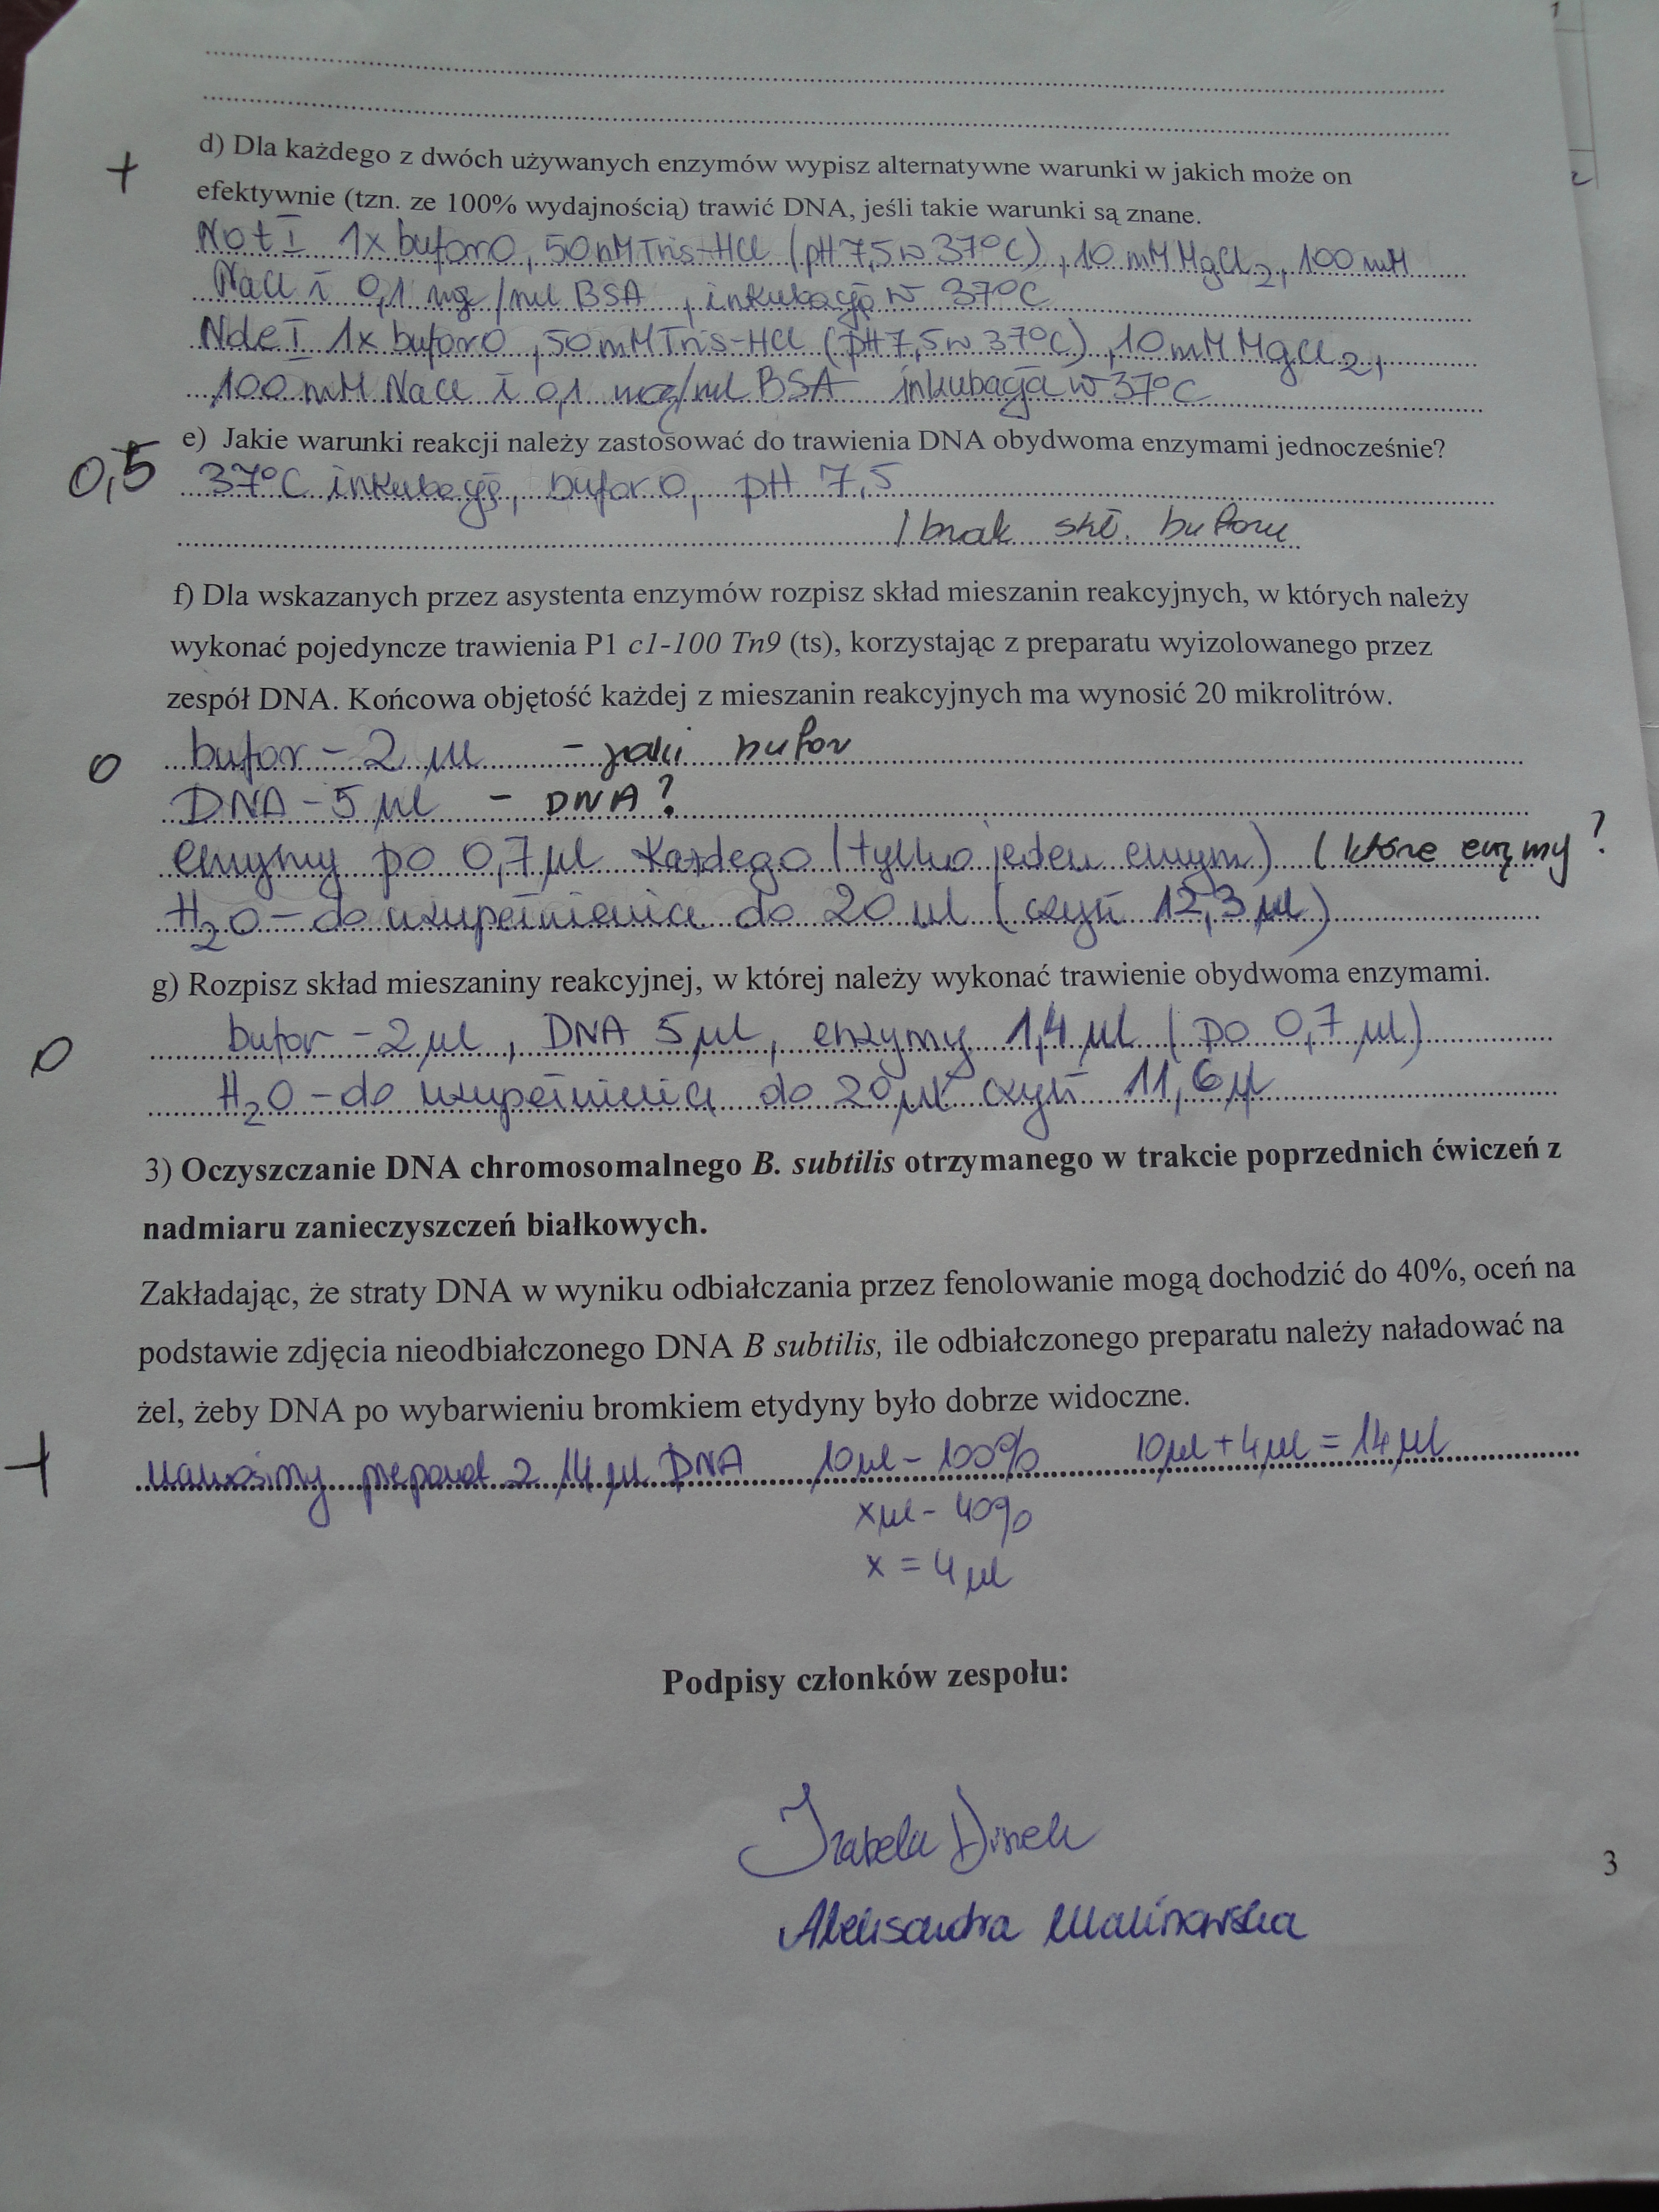 + d) Dla każdego z dwóch używanych enzymów wypisz alternatywne warunki w jakich może on
efektywnie (tzn. ze 100% wydajnością) trawić DNA, jeśli takie warunki są znane.
Not I 1x bufor O, 50 nM Tris-HCl (pH 7,5 w 37°C), 10 mM MgCl2, 100 mM
NaCl i 0,1 mg/ml BSA, inkubacja w 37°C
NdeI 1x bufor O, 50 mM Tris-HCl (pH 7,5 w 37°C), 10 mM MgCl2,
100 mM NaCl i 0,1 mg/ml BSA inkubacja w 37°C
0,5 e) Jakie warunki reakcji należy zastosować do trawienia DNA obydwoma enzymami jednocześnie?
37°C inkubacja, bufor O, pH 7,5
/ brak skł. buforu
f) Dla wskazanych przez asystenta enzymów rozpisz skład mieszanin reakcyjnych, w których należy
wykonać pojedyncze trawienia P1 c1-100 Tn9 (ts), korzystając z preparatu wyizolowanego przez
zespół DNA. Końcowa objętość każdej z mieszanin reakcyjnych ma wynosić 20 mikrolitrów.
0 bufor - 2 µl - jaki bufor
DNA - 5 µl - DNA?
enzymy po 0,7 µl każdego (tylko jeden enzym) ( które enzymy?
H2O - do uzupełnienia do 20 µl (czyli 12,3 µl)
g) Rozpisz skład mieszaniny reakcyjnej, w której należy wykonać trawienie obydwoma enzymami.
0 bufor - 2 µl, DNA 5 µl, enzymy 1,4 µl (po 0,7 µl)
H2O - do uzupełnienia do 20 µl czyli 11,6 µl
3) Oczyszczanie DNA chromosomalnego B. subtilis otrzymanego w trakcie poprzednich ćwiczeń z
nadmiaru zanieczyszczeń białkowych.
Zakładając, że straty DNA w wyniku odbiałczania przez fenolowanie mogą dochodzić do 40%, oceń na
podstawie zdjęcia nieodbiałczonego DNA B subtilis, ile odbiałczonego preparatu należy naładować na
żel, żeby DNA po wybarwieniu bromkiem etydyny było dobrze widoczne.
+ nanosimy preparat z 14 µl DNA 10 µl - 100% 10 µl + 4 µl = 14 µl
x µl - 40%
x = 4 µl
Podpisy członków zespołu:
Izabela
3
Aleksandra Malinowska